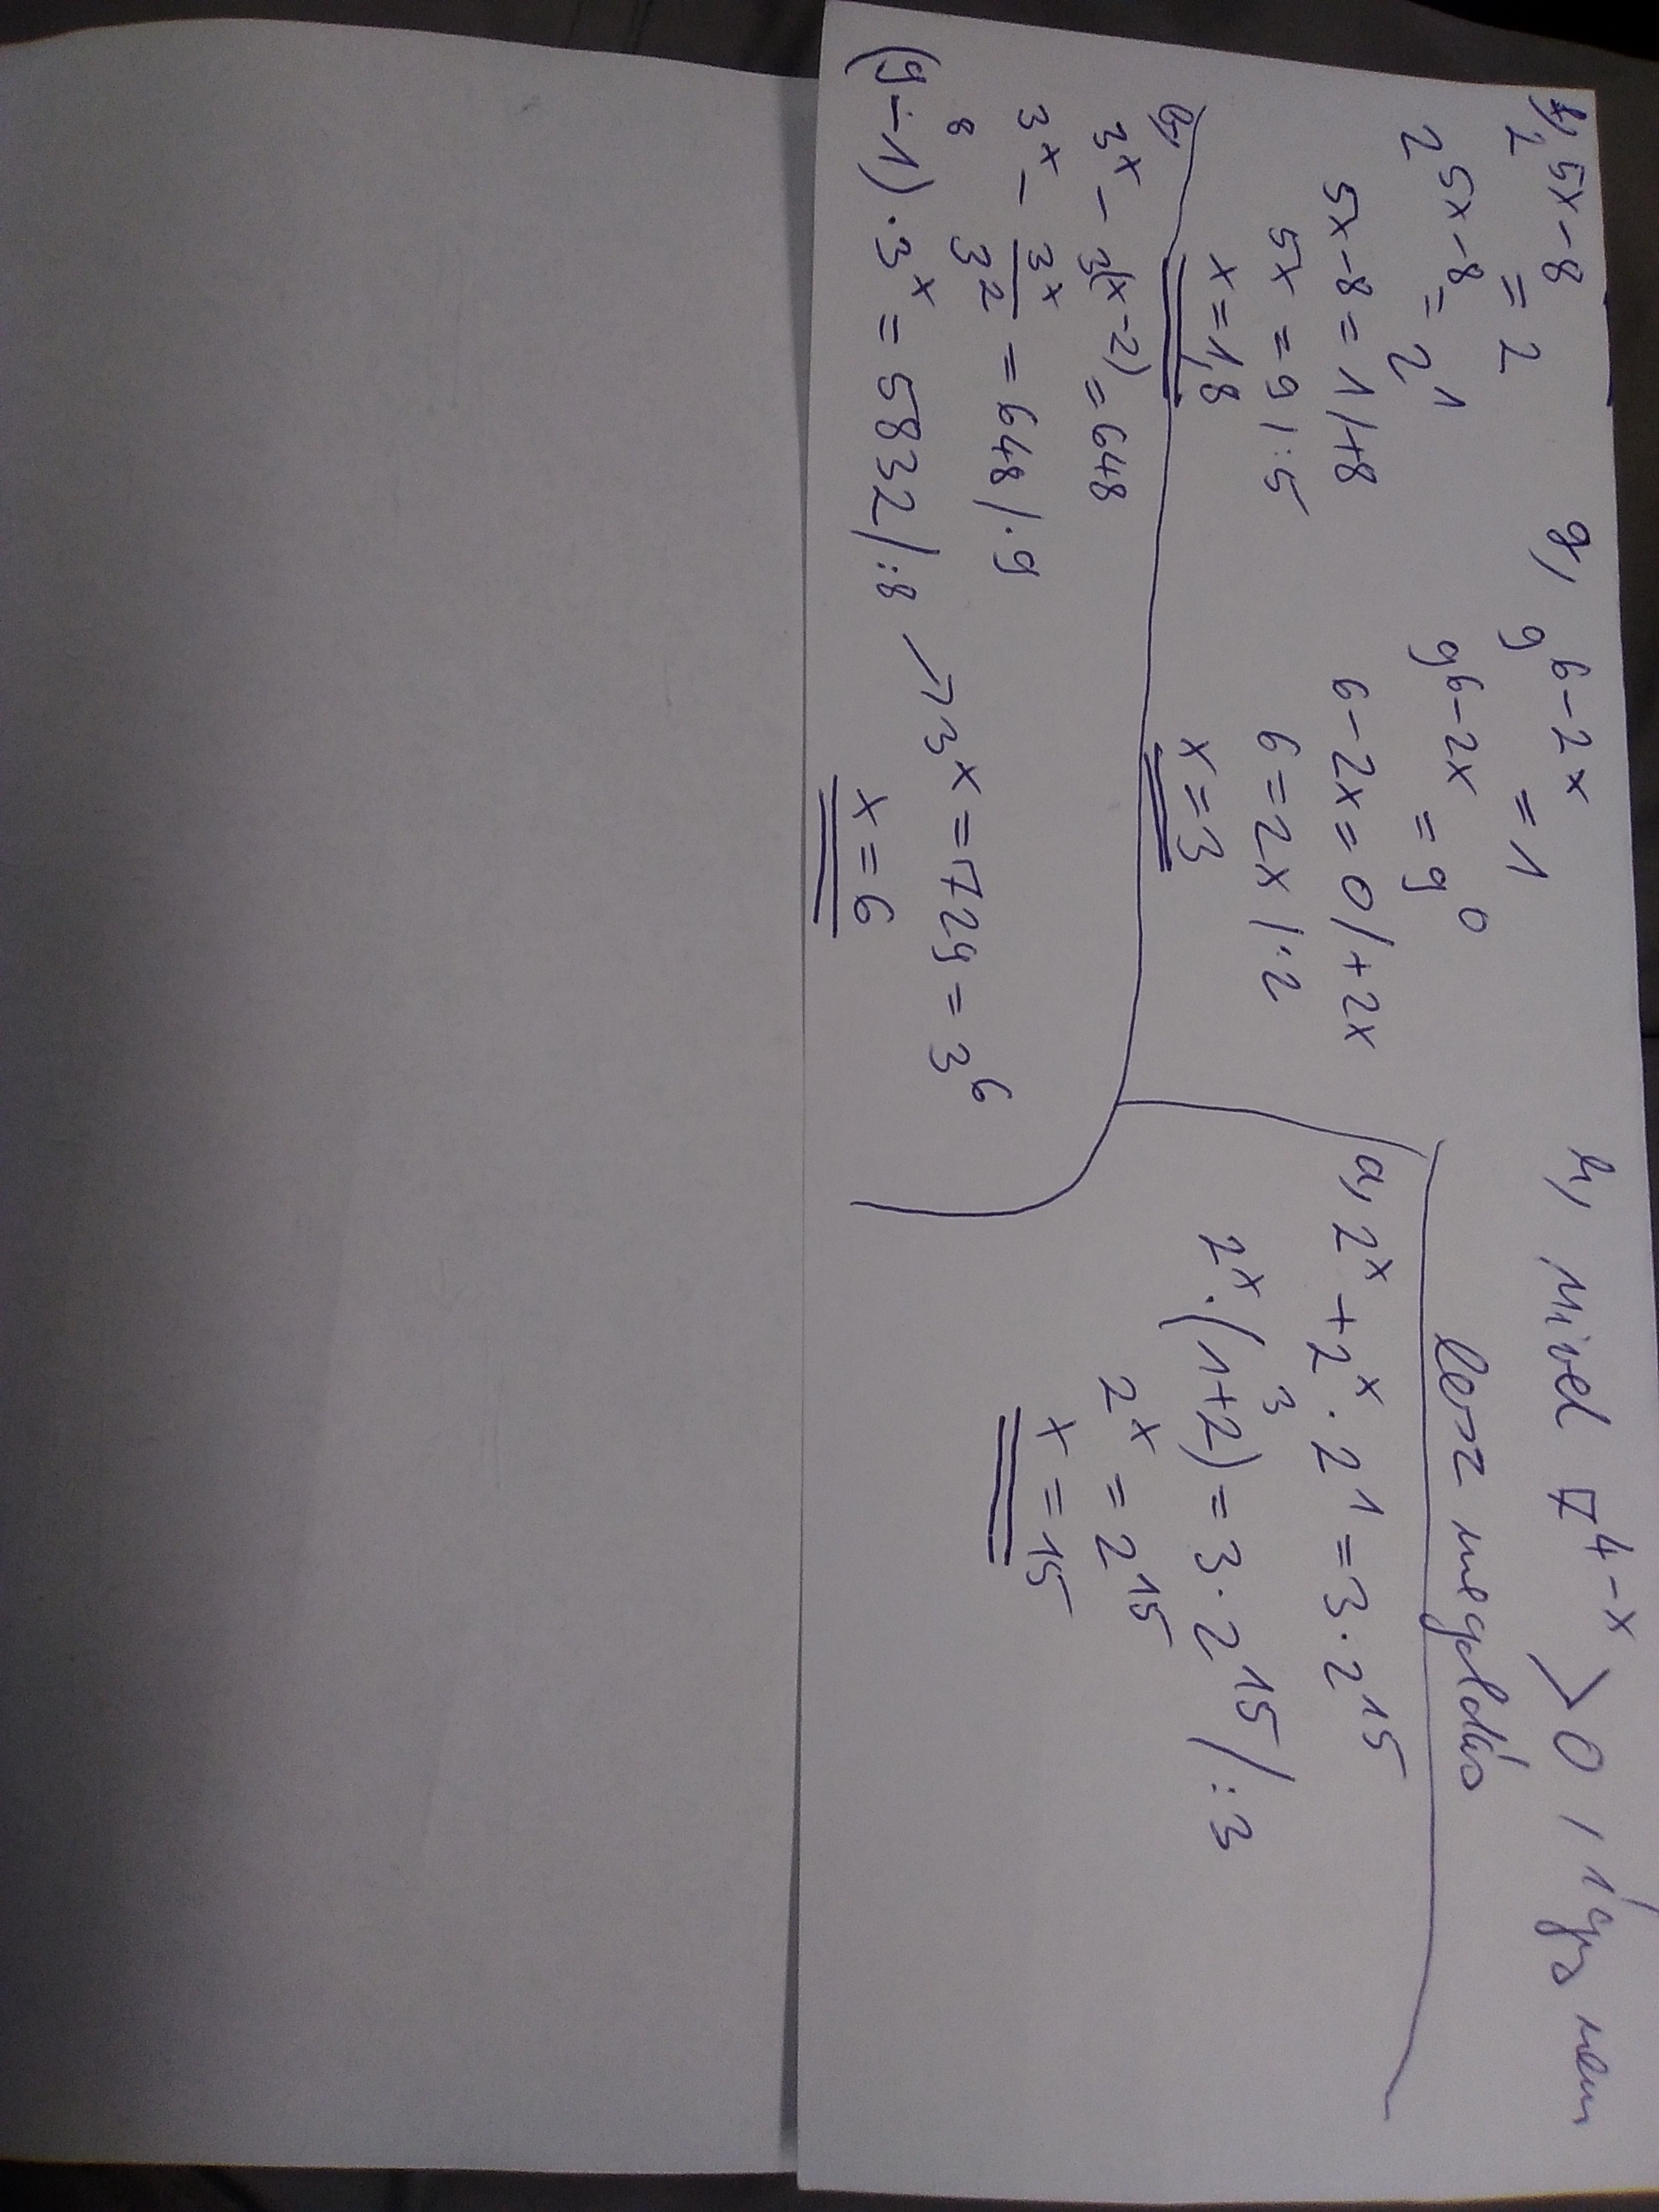 f, 2^{5x-8} = 2
2^{5x-8} = 2^1
5x-8 = 1 /+8
5x = 9 /:5
x = 1,8
g, 9^{6-2x} = 1
9^{6-2x} = 9^0
6-2x = 0 /+2x
6 = 2x /:2
x = 3
h, Mivel 7^{4-x} > 0, így nem
lesz megoldás
a, 2^x + 2^x · 2^1 = 3 · 2^{15}
3
2^x · (1+2) = 3 · 2^{15} /:3
2^x = 2^{15}
x = 15
b,
3^x - 3^{(x-2)} = 648
3^x - \frac{3^x}{3^2} = 648 /·9
8
(9-1) · 3^x = 5832 /:8 → 3^x = 729 = 3^6
x = 6